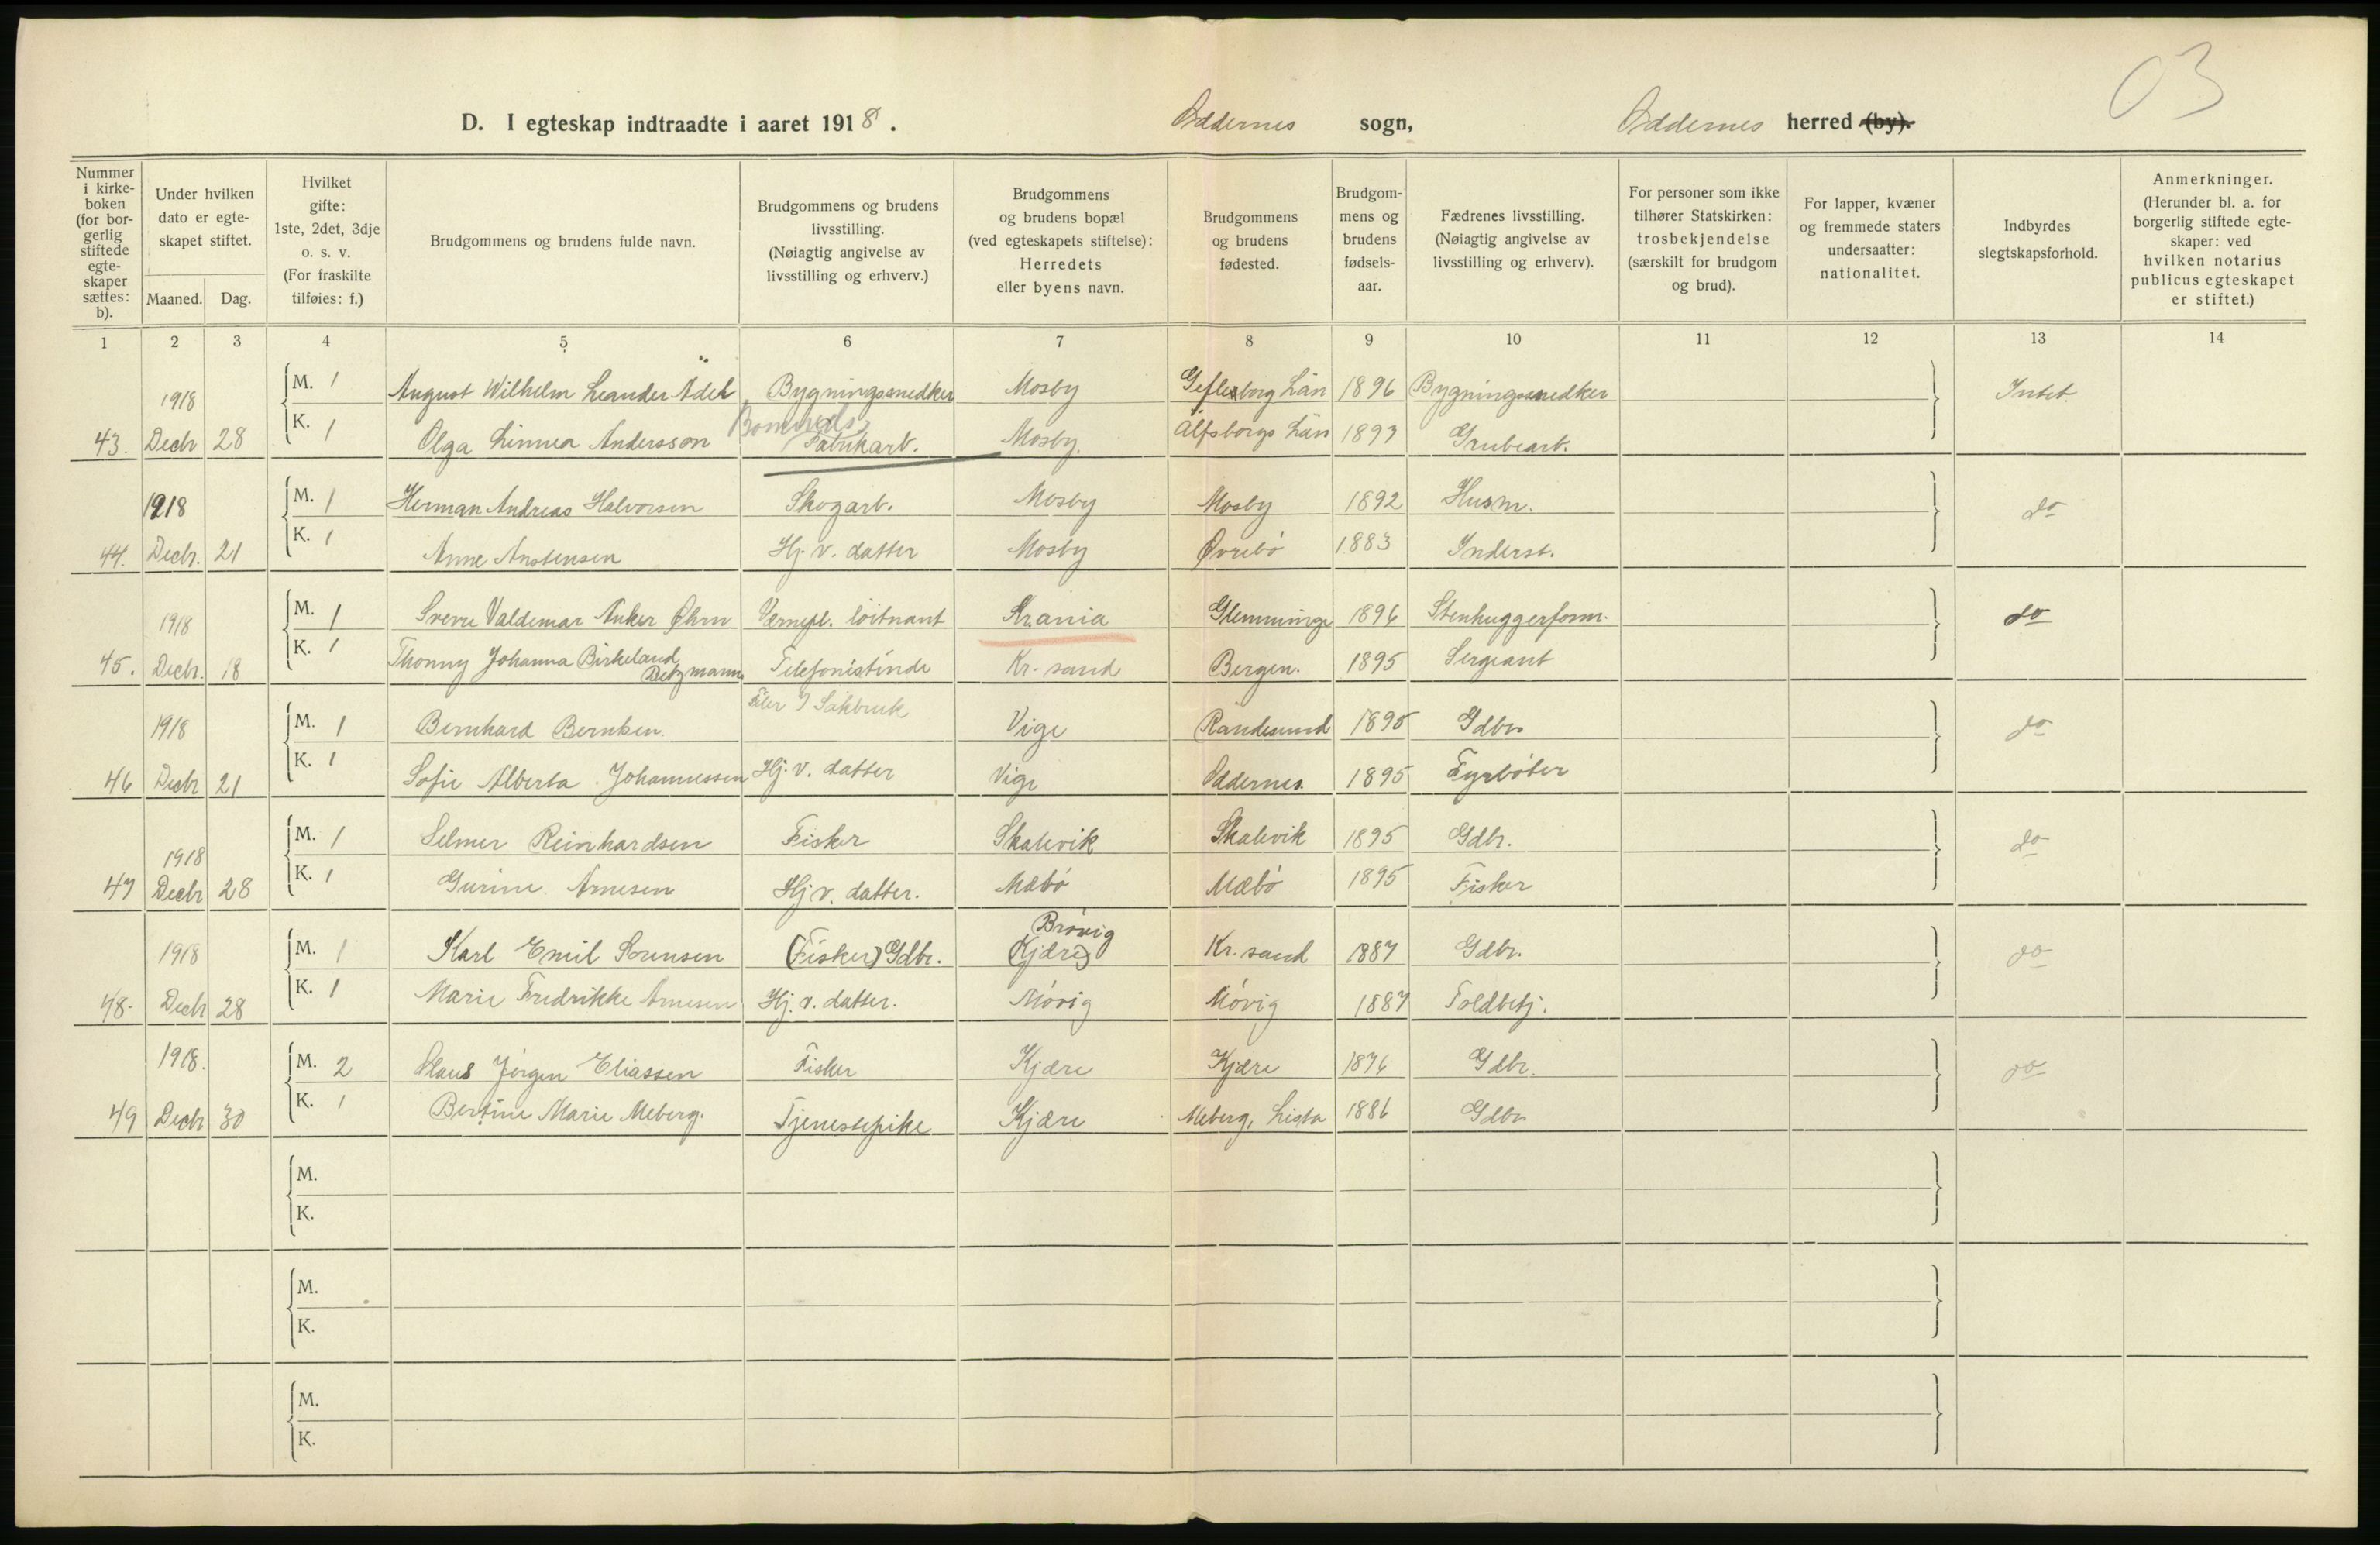 03
D. I egteskap indtraadte i aaret 1918. Oddernes sogn, Oddernes herred (by).
Nummer i kirkeboken (for borgerlig stiftede egteskaper sættes: b).
Under hvilken dato er egteskapet stiftet.
Maaned. Dag.
Hvilket gifte: 1ste, 2det, 3dje o. s. v. (For fraskilte tilføies: f.)
Brudgommens og brudens fulde navn.
Brudgommens og brudens livsstilling. (Nøiagtig angivelse av livsstilling og erhverv.)
Brudgommens og brudens bopæl (ved egteskapets stiftelse): Herredets eller byens navn.
Brudgommens og brudens fødested.
Brudgommens og brudens fødselsaar.
Fædrenes livsstilling. (Nøiagtig angivelse av livsstilling og erhverv).
For personer som ikke tilhører Statskirken: trosbekjendelse (særskilt for brudgom og brud).
For lapper, kvæner og fremmede staters undersaatter: nationalitet.
Indbyrdes slegtskapsforhold.
Anmerkninger. (Herunder bl. a. for borgerlig stiftede egteskaper: ved hvilken notarius publicus egteskapet er stiftet.)
1 2 3 4 5 6 7 8 9 10 11 12 13 14
1918 M. 1 August Wilhelm Leander Ädel Bygningssnedker Mosby Gefleborg Län 1896 Bygningssnedker Intet.
43. Decbr 28 K. 1 Olga Linnea Andersson Bomulds Fabrikarb. Mosby. Älfsborgs Län 1893 Grubearb.
1918 M. 1 Herman Andreas Halvorsen Skogarb. Mosby Mosby 1892 Husm. do
44. Decbr. 21 K. 1 Anne Anstensen Hj. v. datter Mosby Øvrebö 1883 Inderst.
1918 M. 1 Sverre Valdemar Anker Øhrn Vernepl. löitnant Krania Glemminge 1896 Stenhuggerform. do
45. Decbr. 18 K. 1 Thonny Johanna Birkeland Betzmann Telefonistinde Kr. sand Bergen. 1895 Sergeant
1918 M. 1 Bernhard Berntsen. Vige Randesund 1895 Gdbr. do
46 Decbr 21 K. 1 Sofie Alberta Johannessen Hj. v. datter Vige Oddernes 1895 Fyrböter
1918 M. 1 Selmer Reinhardsen Fisker Skalevik Skalevik 1895 Gdbr. do
47 Decbr 28 K. 1 Gurine Arnesen Hj v. datter. Mæbö Mæbö 1895 Fisker
1918 M. 1 Karl Emil Sørensen (Fisker) Gdbr. Brövig (Kjære) Kr. sand 1887 Gdbr. do
48. Decbr 28 K. 1 Marie Fredrikke Arnesen Hj. v. datter. Mövig Mövig 1887 Toldbetj.
1918. M. 2 Claus Jörgen Eliassen Fisker Kjære Kjære 1876 Gdbr. do
49 Decbr 30 K. 1 Bertine Marie Meberg. Tjenestepike Kjære Meberg, Lista 1886 Gdbr
M.
K.
M.
K.
M.
K.